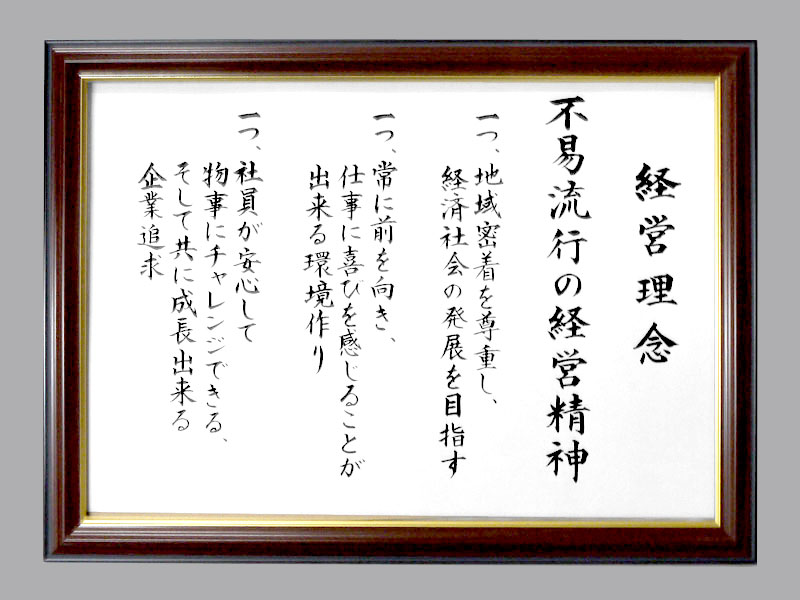 経営理念
不易流行の経営精神
一つ、地域密着を尊重し、
経済社会の発展を目指す
一つ、常に前を向き、
仕事に喜びを感じることが
出来る環境作り
一つ、社員が安心して
物事にチャレンジできる、
そして共に成長出来る
企業追求